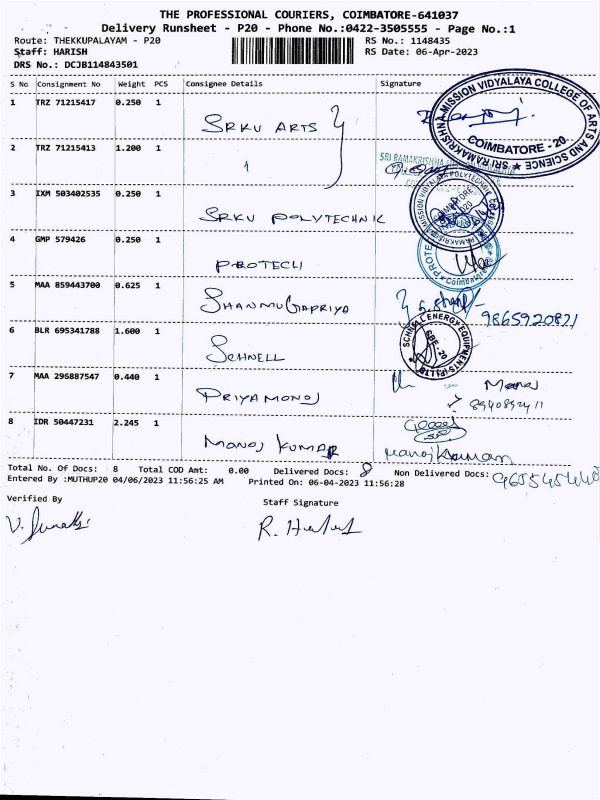 THE PROFESSIONAL COURIERS, COIMBATORE-641037
Delivery Runsheet - P20 - Phone No.:0422-3505555 - Page No.:1
Route: THEKKUPALAYAM - P20 RS No.: 1148435
Staff: HARISH RS Date: 06-Apr-2023
DRS No.: DCJB114843501
S No Consignment No Weight PCS Consignee Details Signature
1 TRZ 71215417 0.250 1
SRKU ARTS
MISSION VIDYALAYA COLLEGE OF ARTS AND SCIENCE ★ SRI RAMAKRISHNA
COIMBATORE - 20
2 TRZ 71215413 1.200 1
SRI RAMAKRISHNA
3 IXM 503402535 0.250 1
SRKU POLYTECHNIC
4 GMP 579426 0.250 1
PROTECH
Coimbatore
5 MAA 859443700 0.625 1
SHANMUGAPRIYA
9865920821
6 BLR 695341788 1.600 1
SCHNELL
SCHNELL ENERGY EQUIPMENTS (P) LTD
CBE-20
7 MAA 296887547 0.440 1
PRIYA MONOJ
Manoj
8 IDR 50447231 2.245 1
MANOJ KUMAR
Manoj Kumar
Total No. Of Docs: 8 Total COD Amt: 0.00 Delivered Docs: 8 Non Delivered Docs:
Entered By :MUTHUP20 04/06/2023 11:56:25 AM Printed On: 06-04-2023 11:56:28
Verified By Staff Signature